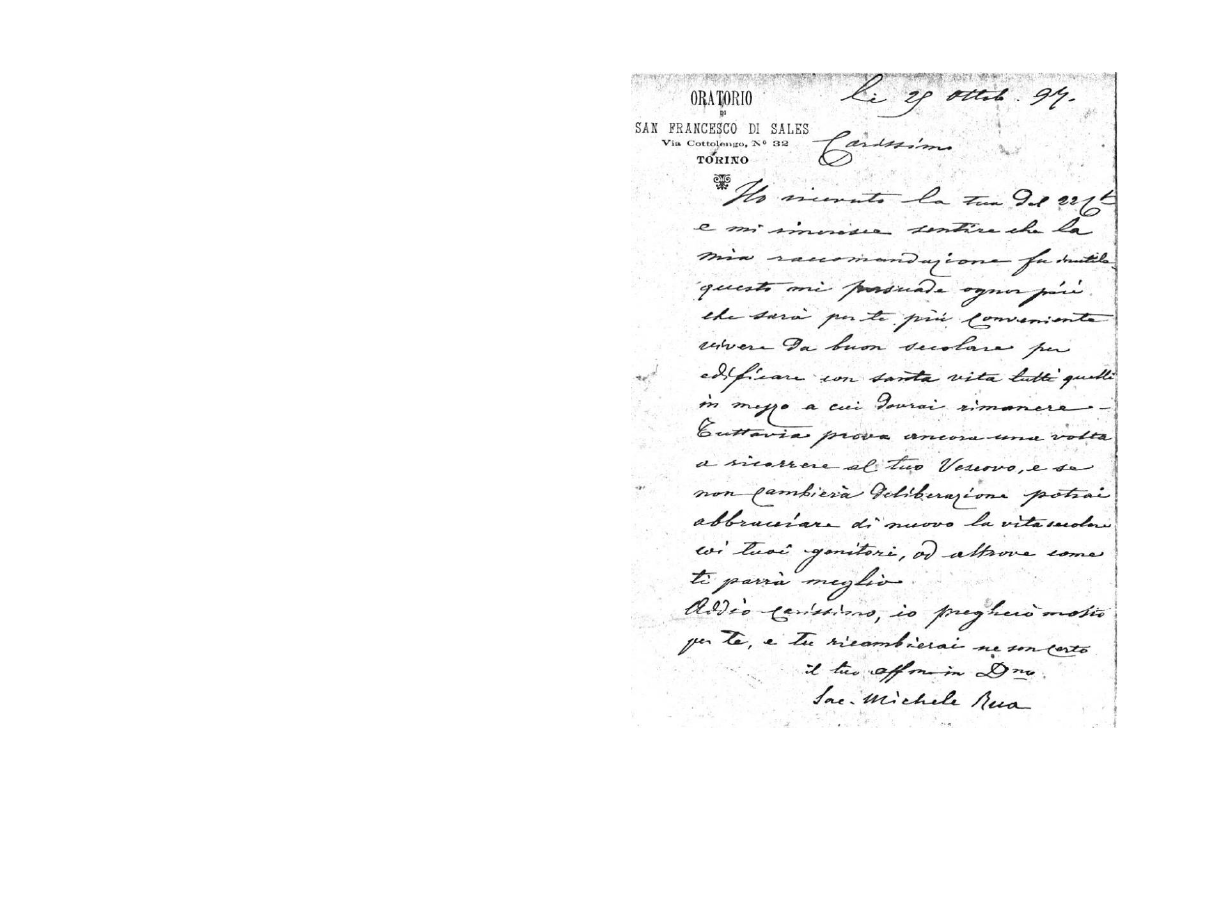 ORATORIO
DI
SAN FRANCESCO DI SALES
Via Cottolengo, Nº 32
TORINO
li 29 Ottob. 97.
Carissimo
Ho ricevuto la tua del 22
e mi rincresce sentire che la
mia raccomandazione fu inutile.
questo mi persuade ognor più
che sarà per te più conveniente
vivere da buon secolare per
edificare con santa vita tutti quelli
in mezzo a cui dovrai rimanere -
Tuttavia prova ancora una volta
a ricorrere al tuo Vescovo, e se
non cambierà deliberazione potrai
abbracciare di nuovo la vita secolare
coi tuoi genitori, od altrove come
ti parrà meglio
Addio carissimo, io pregherò molto
per te, e tu ricambierai ne son certo
il tuo affmo in Dno.
Sac. Michele Rua